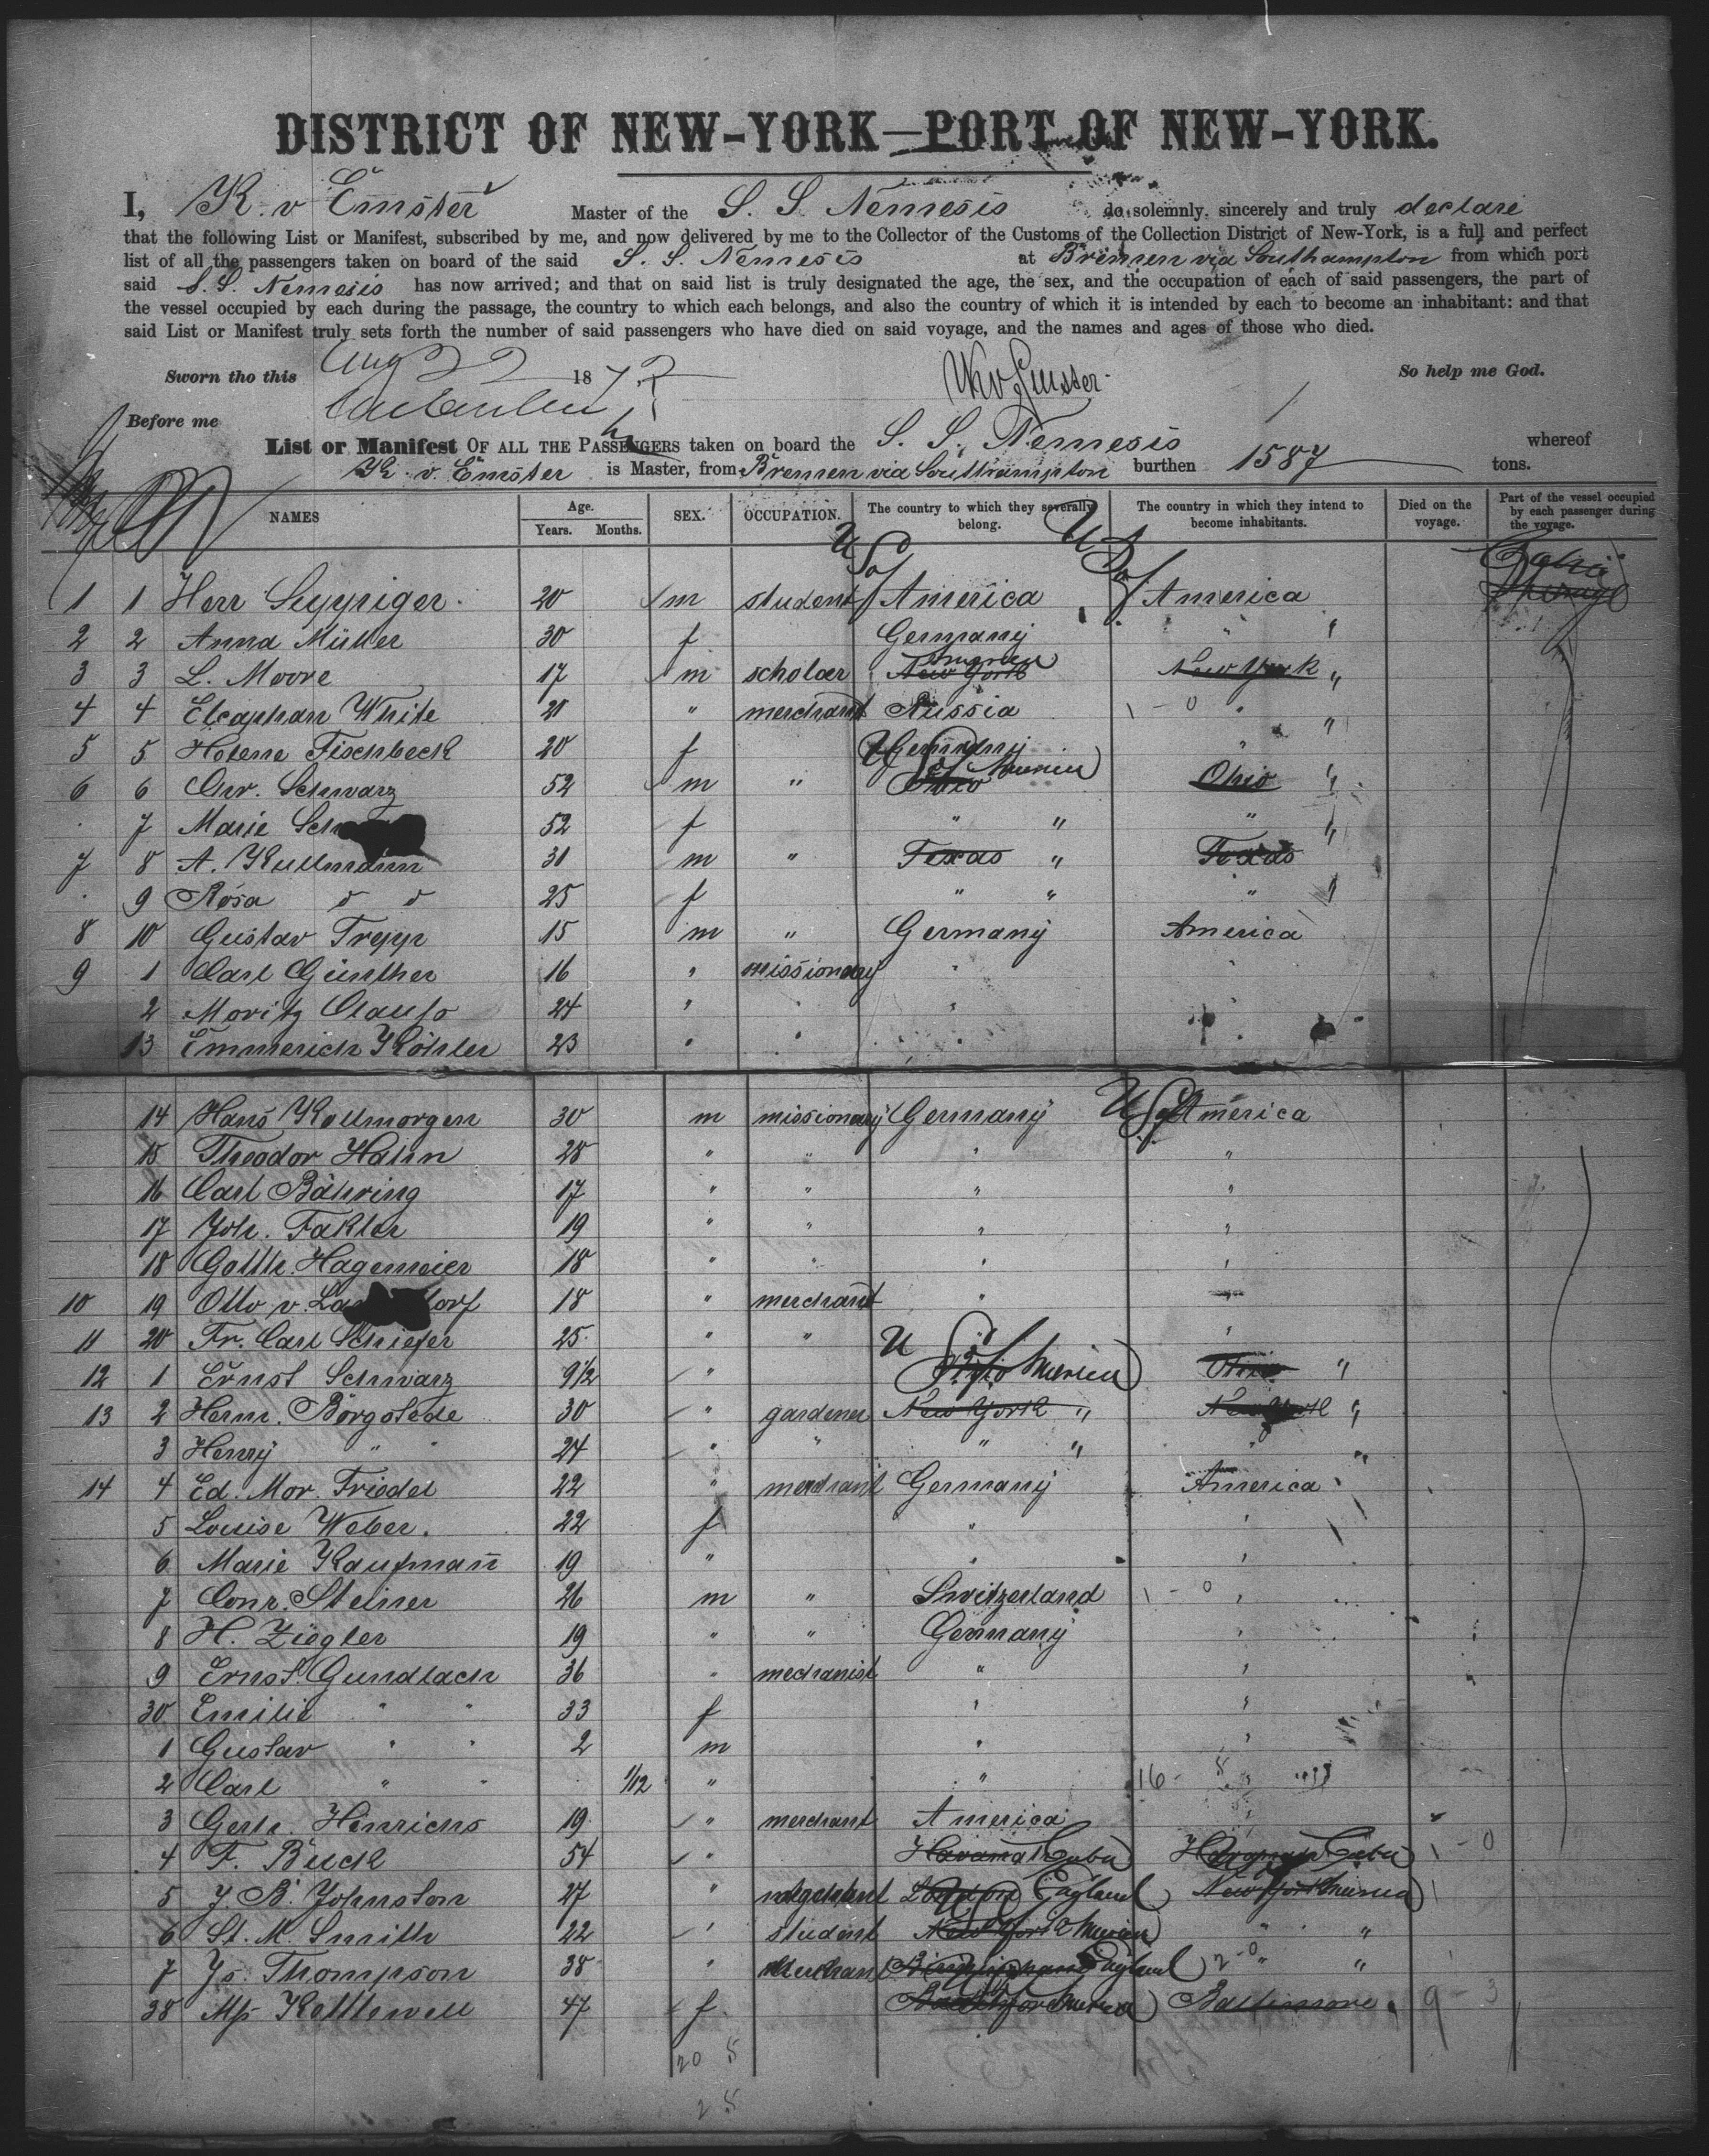 DISTRICT OF NEW-YORK—PORT OF NEW-YORK.
I, K. v Emster Master of the S. S. Nemesis do solemnly, sincerely and truly declare
that the following List or Manifest, subscribed by me, and now delivered by me to the Collector of the Customs of the Collection District of New-York, is a full and perfect
list of all the passengers taken on board of the said S. S. Nemesis at Bremen via Southampton from which port
said S. S. Nemesis has now arrived; and that on said list is truly designated the age, the sex, and the occupation of each of said passengers, the part of
the vessel occupied by each during the passage, the country to which each belongs, and also the country of which it is intended by each to become an inhabitant: and that
said List or Manifest truly sets forth the number of said passengers who have died on said voyage, and the names and ages of those who died.
Sworn tho this Aug 22 1872 So help me God.
Before me
List or Manifest OF ALL THE PASSENGERS taken on board the S. S. Nemesis whereof
K. v. Emster is Master, from Bremen via Southampton burthen 1587 tons.
NAMES Age. Years. Months. SEX. OCCUPATION. The country to which they severally belong. The country in which they intend to become inhabitants. Died on the voyage. Part of the vessel occupied by each passenger during the voyage.
1 1 Herr Seyppiger 20 m student U S of America U S of America
2 2 Anna Müller 30 f Germany " "
3 3 L. Moore 17 m scholar New York New York "
4 4 White 21 " merchant Russia 1 - 0 " "
5 5 Helene Fischbeck 20 f Germany " "
6 6 Chr. Schwarz 52 m " Ohio U S of America Ohio "
7 Marie 52 f " " " "
7 8 A. Kullmann 31 m " Texas " Texas "
9 Rosa 25 f " " " "
8 10 Gustav Trepp 15 m " Germany America
9 1 Carl Günther 16 " missionary " "
2 Moritz 24 " " " "
13 Emmerich Köhler 23 " " " "
14 Hans Kollmorgen 30 m missionary Germany U S of America
15 Theodor Hahn 28 " " " "
16 Carl Bähring 17 " " " "
17 Joh. Fakler 19 " " " "
18 Gotth. Hagemeier 18 " " " "
10 19 Otto v. 18 " merchant " "
11 20 Fr. Carl Schiefer 25 " " "
12 1 Ernst Schwarz 9 1/2 " Ohio U S of America Ohio "
13 2 Herm. Borgstede 30 " gardener New York " New York "
3 Henry " " 24 " " " " " "
14 4 Ed. Mor. Friedel 22 " merchant Germany America
5 Louise Weber. 22 f " "
6 Marie Kaufmañ 19 " " "
7 Conr. Steiner 26 m " Switzerland 1 - 0 "
8 H. Ziegler 19 " " Germany "
9 Ernst Gundlach 36 " mechanist " "
30 Emilie " " 33 f " "
1 Gustav " " 2 m " "
2 Carl " " 1/12 " " 16 - 8 "
3 Gerh. Hinrichs 19 " merchant America "
4 F. Buck 54 " Havanna Cuba Havanna Cuba 1 - 0
5 J. B. Johnston 27 " London England New York America 1
6 St. M. Smith 22 " student New York U S America " "
7 Js. Thompson 38 " Merchant Birmingham England 2 - 0 " "
38 Ms Kettlewell 47 f Baltimore America Baltimore 9 - 3
20 5
25